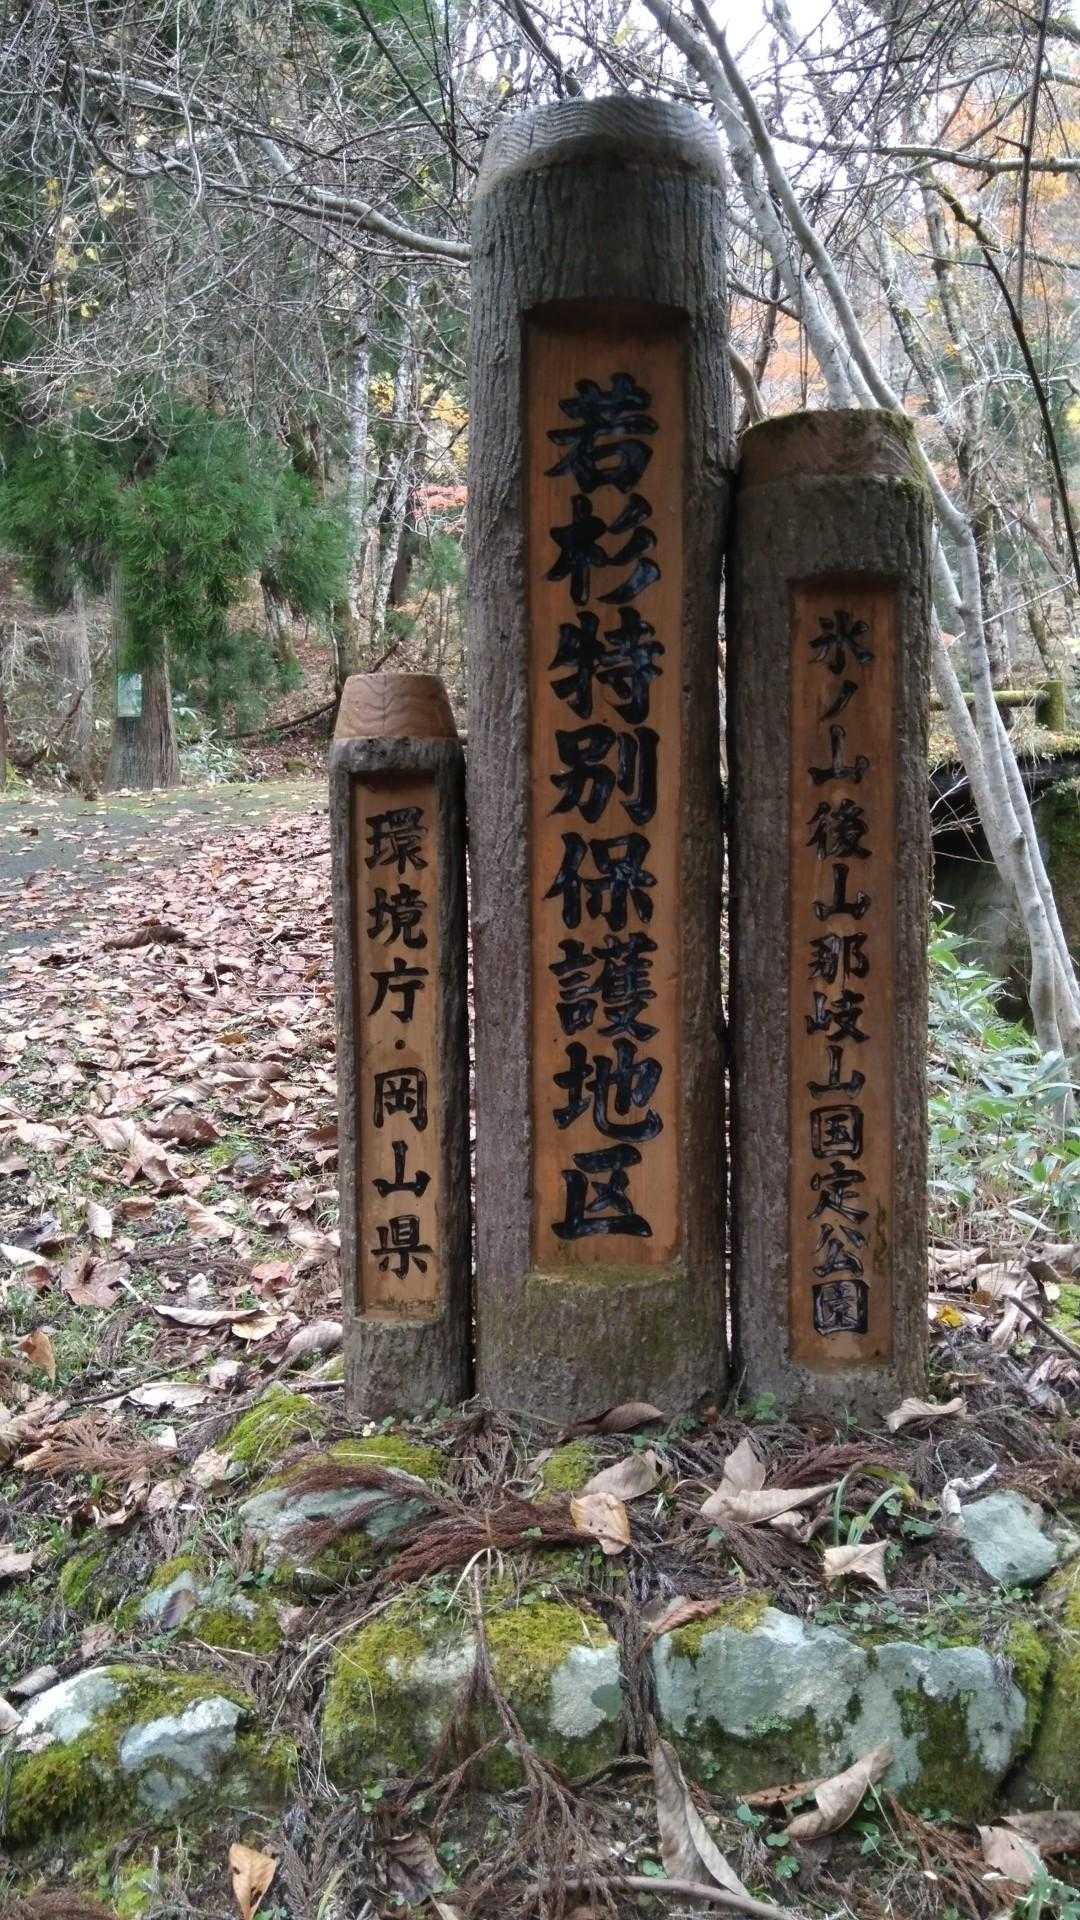 氷ノ山後山那岐山国定公園
若杉特別保護地区
環境庁・岡山県